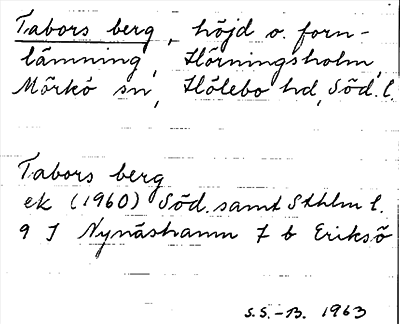 Tabors berg, höjd o. forn-
lämning, Hörningsholm,
Mörkö sn, Hölebo hd, Söd. l.
Tabors berg
ek (1960) Söd. samt Sthlm l.
9 I Nynäshamn 7 b Eriksö
S.S.-B. 1963